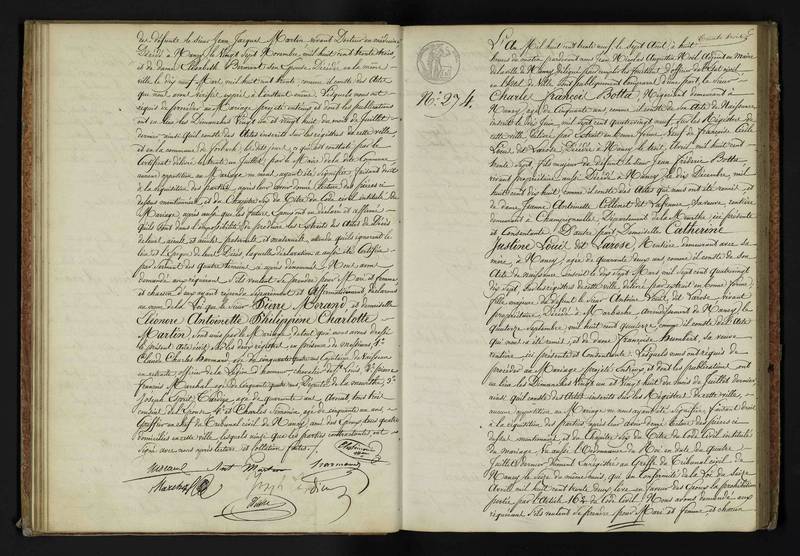 des défunts le sieur Jean Jacques Martin vivant Docteur en médecine
Décédé à Nancy le vingt sept Novembre mil huit cent trente trois
et de dame Elisabeth son Epouse Décédée en la même
ville le dix neuf Mai mil huit cent trente comme il conste des Actes
qui nous ont à l'instant même. Lesquels nous ont
requis de procéder au Mariage projeté entr'eux et dont les publications
ont eu lieu les Dimanches Vingt un et vingt huit du mois de juillet
dernier ainsi qu'il conste des Actes insérés sur les registres de cette ville
et en la commune de le sept août, ce qui est constaté par le
Certificat délivré le trente un juillet, par le Maire de la dite Commune
aucune opposition au Mariage ne nous ayant été signifiée faisant droit
à la réquisition des parties, après leur avoir donné lecture des pièces ci
dessus mentionnées et du Chapitre Six du Titre du Code civil intitulé du
Mariage, après aussi que les futurs Epoux ont eu déclaré et affirmé
qu'ils sont dans l'impossibilité de produire les Extraits des Actes de Décès
de leurs aieuls et aieules paternels et maternels, attendu qu'ils ignorent le
lieu et l'époque de leurs Décès laquelle déclaration a aussi été certifiée
par serment des quatre témoins ci après dénommés. Nous avons
demandé aux requérants s'ils veulent se prendre pour Mari et femme
et chacun d'eux ayant répondu séparément et Affirmativement déclarons
au nom de la Loi que le Sieur Pierre Morand et demoiselle
Léonore Antoinette Philippine Charlotte
Martin sont unis par le Mariage de tout quoi nous avons dressé
le présent acte civil sur les deux registres en présence de Messieurs 1°
Claude Charles Normand, agé de cinquante ans Capitaine de Cuirassiers
en retraite, officier de la Légion d'honneur, chevalier de St Louis, 2° pierre
François Marchal agé de cinquante ans, Député de la Meurthe, 3°
Joseph agé de quarante ans Avocat tous trois
de l'Epouse 4° et Charles Simonin, agé de cinquante un ans,
Greffier au Tribunal civil de Nancy ami des Epoux tous quatre
domiciliés en cette ville lesquels ainsi que les parties contractantes, ont
signé avec nous après lecture et collation faites./.
Morand Ant Martin Normand
Marchal
N°. 274.
L'An Mil huit cent trente neuf le sept Août à huit
heures du matin pardevant nous Jean Nicolas Augustin Noël Adjoint au maire
de la ville de Nancy délégué pour remplir les fonctions d'officier de l'état civil
en l'hôtel de Ville sont publiquement comparus d'une part le Sieur
Charles François Botta, Négociant demeurant à
Nancy, agé de Cinquante ans comme il conste de son Acte de Naissance
inscrit le dix Juin mil sept cent quatre vingt neuf sur les Registres de
cette ville délivré par Extrait en bonne forme Veuf de Françoise Cécile
Louis dit Larose Décédée à Nancy le trente Avril mil huit cent
trente sept fils majeur de défunt le sieur Jean Frédéric Botta
vivant propriétaire aussi Décédé à Nancy le dix Décembre mil
huit cent dix huit comme il conste des Actes qui nous ont été remis et
de dame Jeanne Antoinette sa veuve, rentière
demeurante à Champigneulles, Département de la Meurthe ici présente
et Consentante. D'autre part Demoiselle Catherine
Justine Louis dit Larose, Rentière, demeurant avec sa
mère, à Nancy, agée de quarante deux ans comme il conste de son
Acte de naissance inscrit le dix sept Mars mil sept cent quatre vingt
dix sept sur les registres de cette ville, délivré par extrait en bonne forme,
fille majeure du défunt le sieur Antoine Louis dit Larose, vivant
propriétaire, Décédé à Marbache, arrondissement de Nancy, le
quatorze Septembre mil huit cent quatorze, comme il conste de l'Acte
qui nous a été remis, et de dame Françoise Humbert, sa veuve
rentière ici présente et Consentante. Lesquels nous ont requis de
procéder au Mariage projeté entr'eux et dont les publications ont
eu lieu les Dimanches Vingt un et Vingt huit du mois de Juillet dernier
ainsi qu'il conste des Actes insérés sur les Registres de cette ville,
aucune opposition au Mariage ne nous ayant été signifiée faisant droit
à la réquisition des parties après leur avoir donné lecture des pièces ci
dessus mentionnées, et du Chapitre Six du Titre du Code Civil intitulé
du mariage. Vu aussi l'ordonnance du Roi en date du quatre
Juillet dernier dûment Enregistrée au Greffe du Tribunal civil de
Nancy le seize du même mois, qui en conformité de la Loi du Seize
Avril mil huit cent trente deux lève en faveur des Epoux la prohibition
portée par l'Article 162 du Code civil. Nous avons demandé aux
requérant s'ils veulent se prendre pour Mari et femme, et chacun